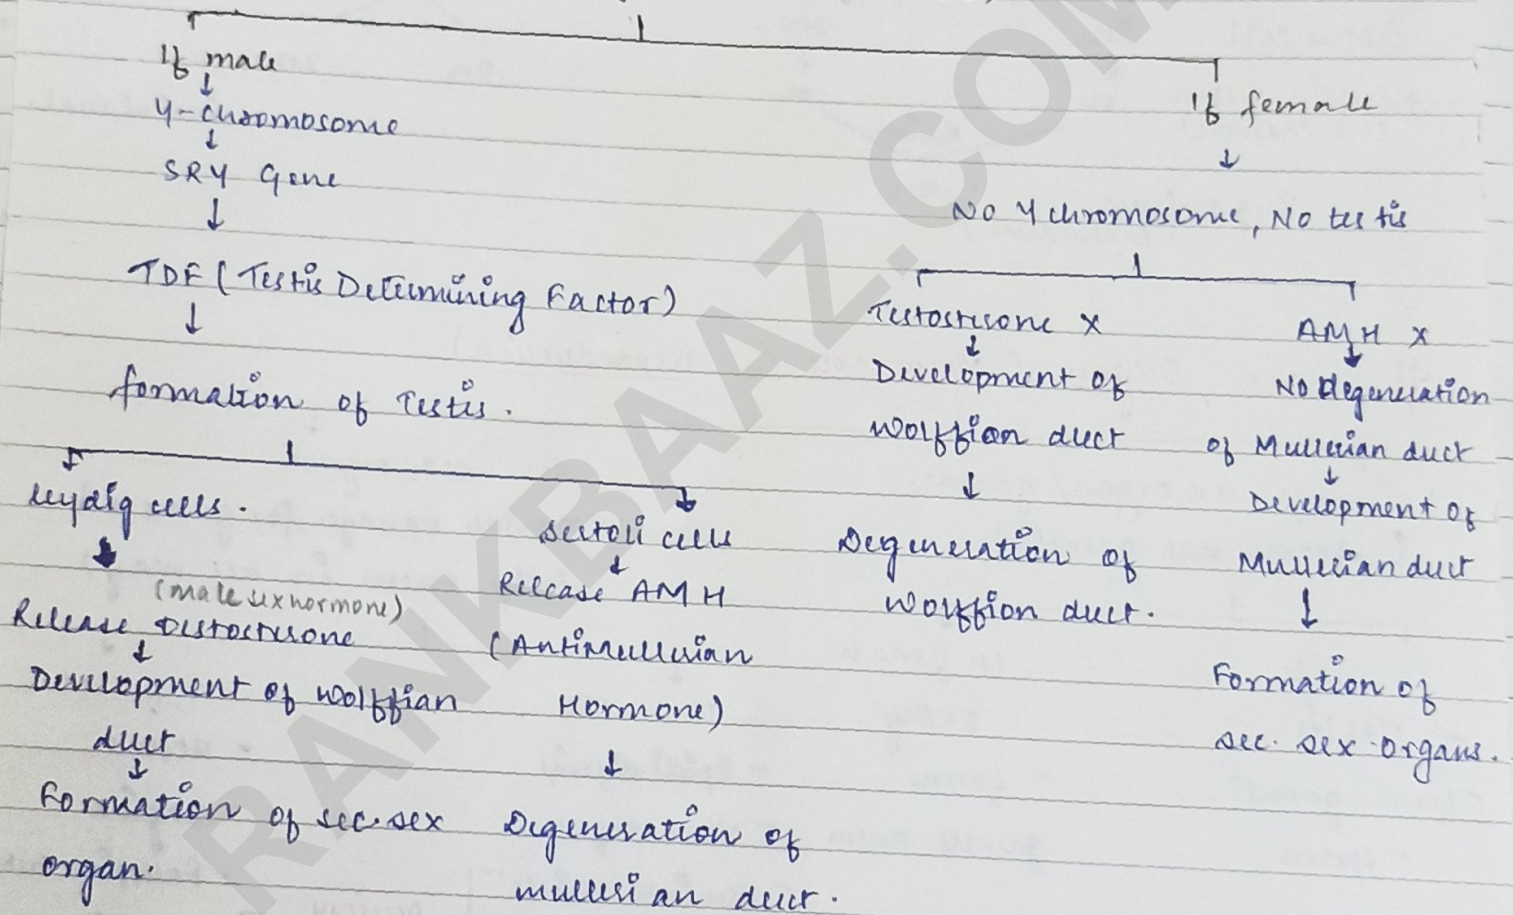 If male
↓
Y-chromosome
↓
SRY Gene
↓
TDF (Testis Determining Factor)
↓
formation of Testis.
leydig cells.
↓
(male sex hormone)
Release Testosterone
↓
Development of wolffian
duct
↓
Formation of sec. sex
organ.
Sertoli cells
↓
Release AMH
(AntiMullerian
Hormone)
↓
Degeneration of
mullerian duct.
If female
↓
No Y chromosome, No testis
Testosterone x
↓
Development of
wolffian duct
↓
Degeneration of
wolffian duct.
AMH x
↓
No degeneration
of Mullerian duct
↓
Development of
Mullerian duct
↓
Formation of
sec. sex organs.
RANKBAAZ.COM